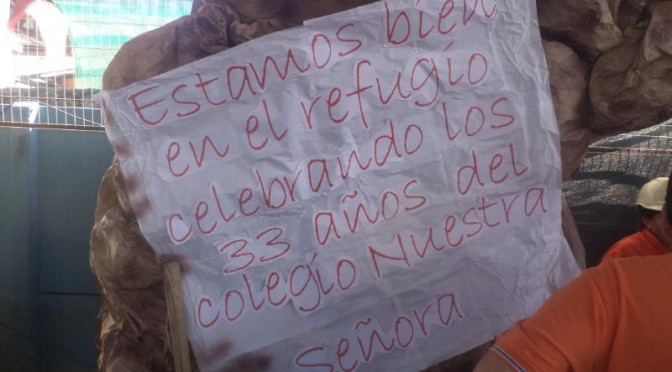 Estamos bien
en el refugio
celebrando los
33 años del
colegio Nuestra
Señora